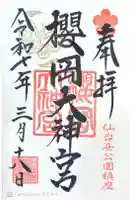 奉拝
仙台西公園鎮座
櫻岡大神宮
令和七年三月十八日